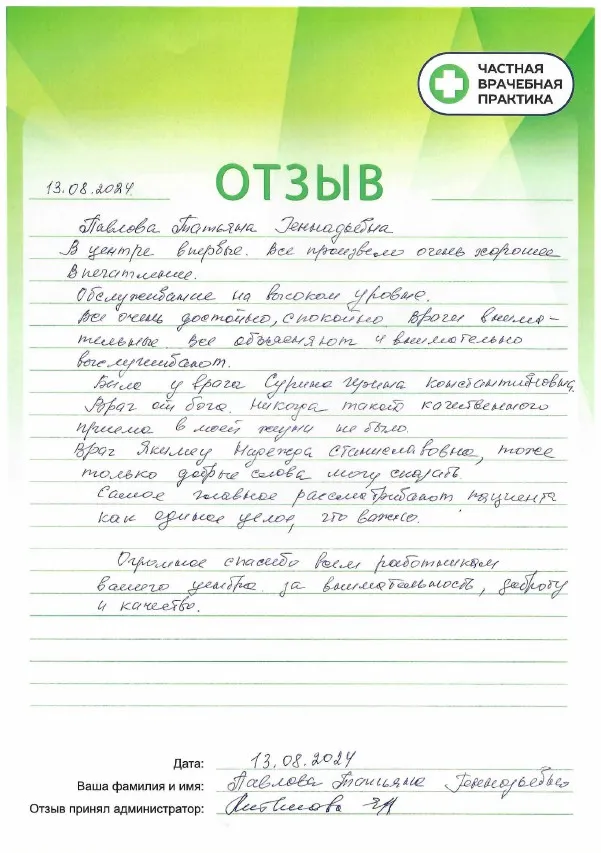 ЧАСТНАЯ
ВРАЧЕБНАЯ
ПРАКТИКА
ОТЗЫВ
13.08.2024
Павлова Татьяна Геннадьевна
В центре впервые. Все произвело очень хорошее
впечатление.
Обслуживание на высоком уровне.
Все очень достойно, спокойно. Врачи внима-
тельные. Все объясняют и внимательно
выслушивают.
Была у врача Сурина Ирина Константиновна.
Врач от бога. Никогда такого качественного
приема в моей жизни не было.
Врач Якимец Надежда Станиславовна, тоже
только добрые слова могу сказать.
Самое главное рассматривают пациента
как единое целое, это важно.
Огромное спасибо всем работникам
вашего центра за внимательность, доброту
и качество.
Дата: 13.08.2024
Ваша фамилия и имя: Павлова Татьяна Геннадьевна
Отзыв принял администратор: